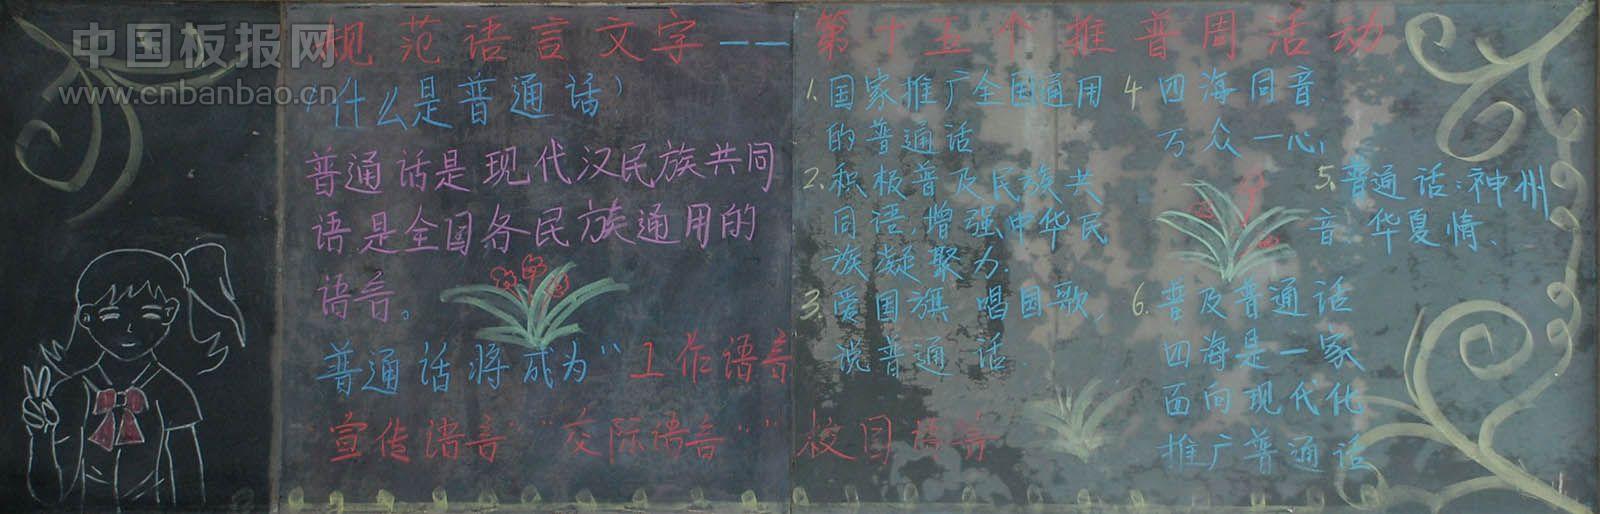 中国板报网
www.cnbanbao.cn
规范语言文字——第十五个推普周活动
（什么是普通话）
普通话是现代汉民族共同
语是全国各民族通用的
语言。
普通话将成为“工作语言
“宣传语言”“交际语言”“校园语言
1. 国家推广全国通用
的普通话
2. 积极普及民族共
同语,增强中华民
族凝聚力.
3. 爱国旗 唱国歌,
说普通话.
4 四海同音、
万众一心,
5、普通话:神州
音、华夏情、
6. 普及普通话
四海是一家
面向现代化
推广普通话